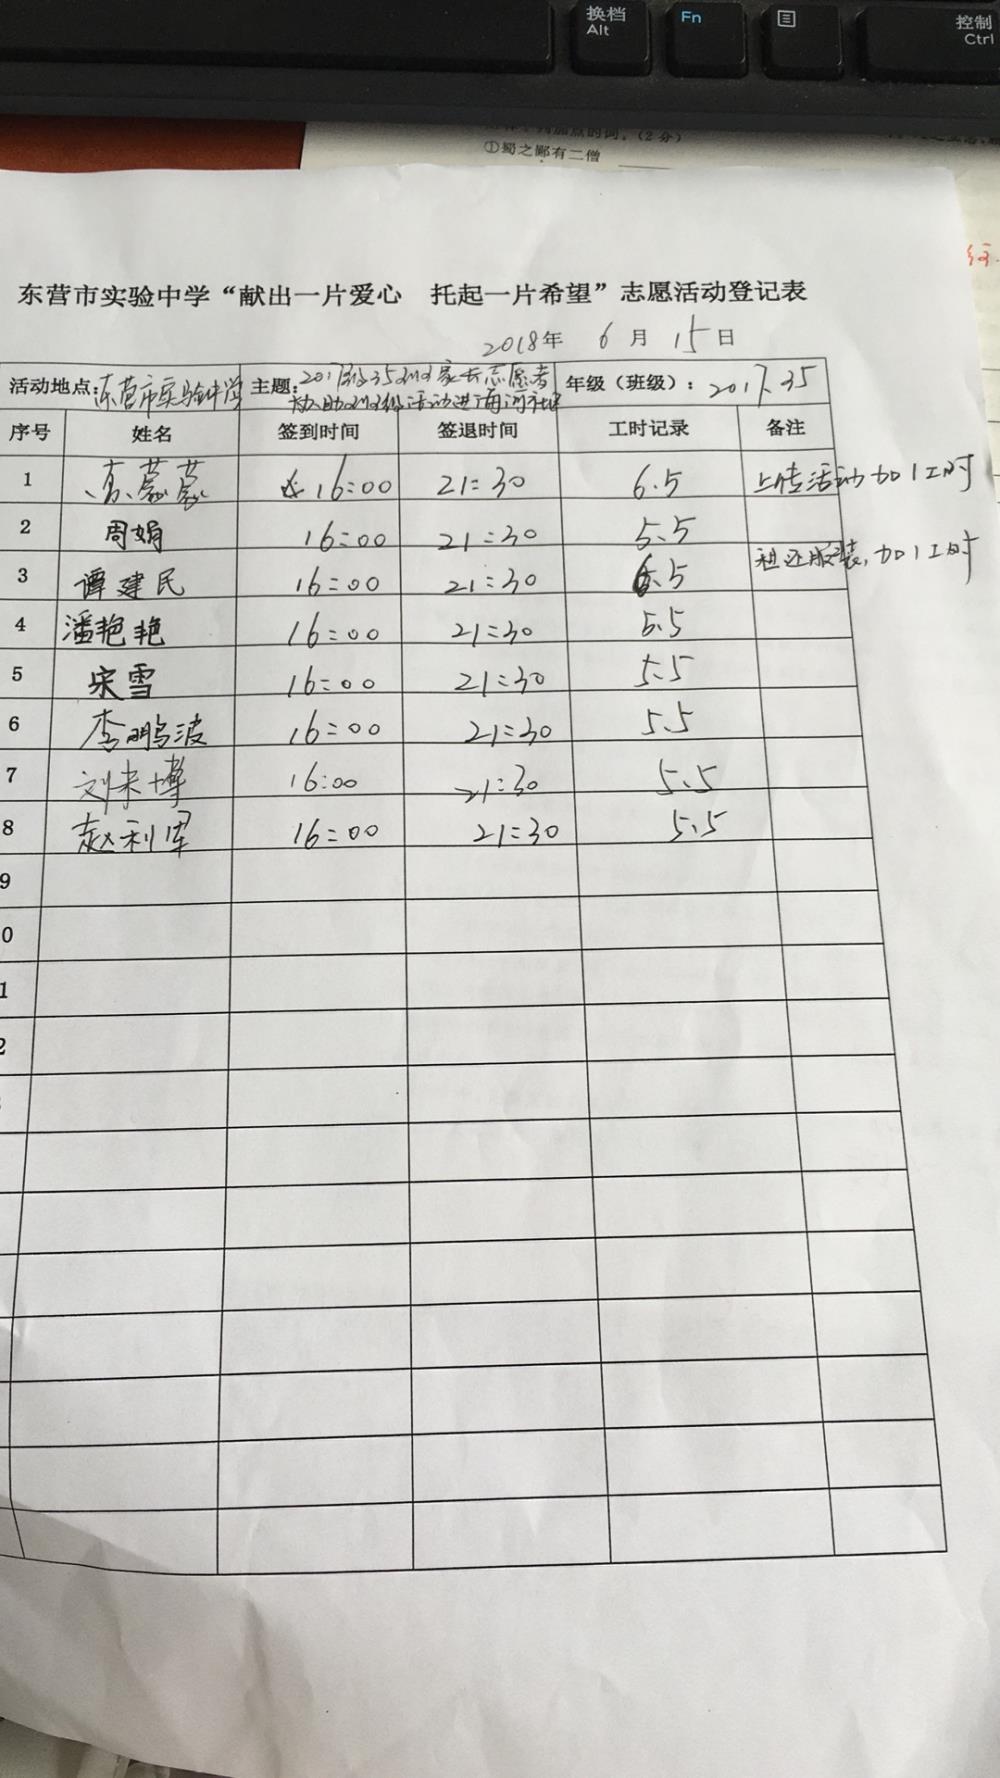 换档
Alt
Fn
控制
Ctrl
加点的词。(2分)
①蜀之鄙有二僧
东营市实验中学“献出一片爱心 托起一片希望”志愿活动登记表
2018年 6 月 15日
活动地点:东营市实验中学 主题:2017级35班家长志愿者 年级（班级）: 2017.35
协助班级活动进海河社区
序号 姓名 签到时间 签退时间 工时记录 备注
1 16:00 21:30 6.5 上传活动加1工时
2 周娟 16:00 21:30 5.5
3 谭建民 16:00 21:30 6.5 租还服装,加1工时
4 潘艳艳 16:00 21:30 5.5
5 宋雪 16:00 21:30 5.5
6 李鹏波 16:00 21:30 5.5
7 刘来博 16:00 21:30 5.5
8 赵利军 16:00 21:30 5.5
9
0
1
2